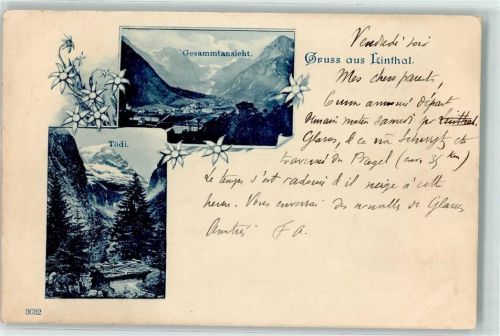 Gesammtansicht.
Gruss aus Linthal.
Tödi.
Vendredi soir
Mes chers parents,
départ
demain matin samedi pr Linthal
Glarus, & ce via Schwyz &
traversée du Pragel (env. 35 km)
Le temps s'est radouci & il neige à cette
heure. Vous enverrai des nouvelles de Glarus
Amitiés F A.
3692